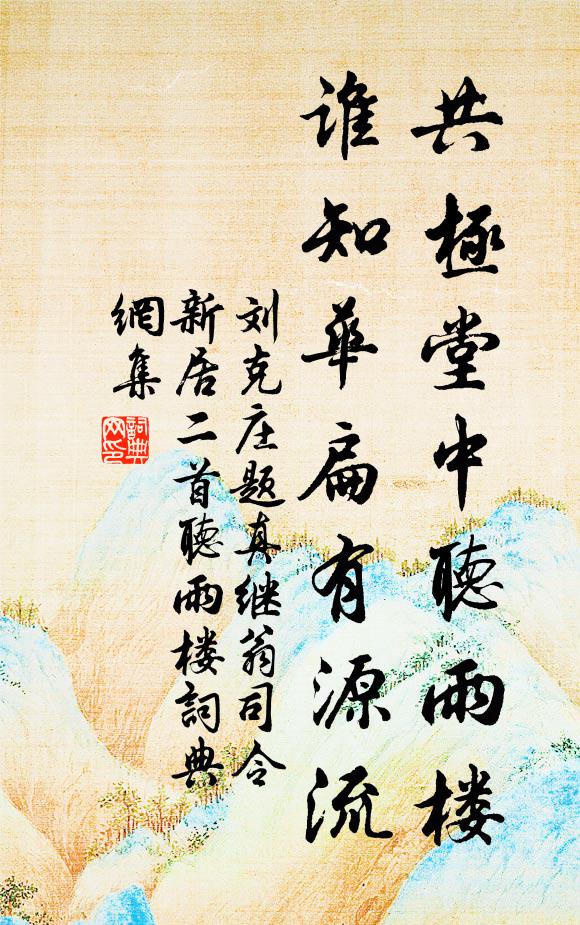 共極堂中聽雨楼
誰知華扁有源流
刘克庄题真继翁司令
新居二首聽雨楼詞典
網集
詞典
网印